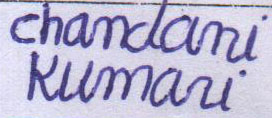 chandani
Kumari